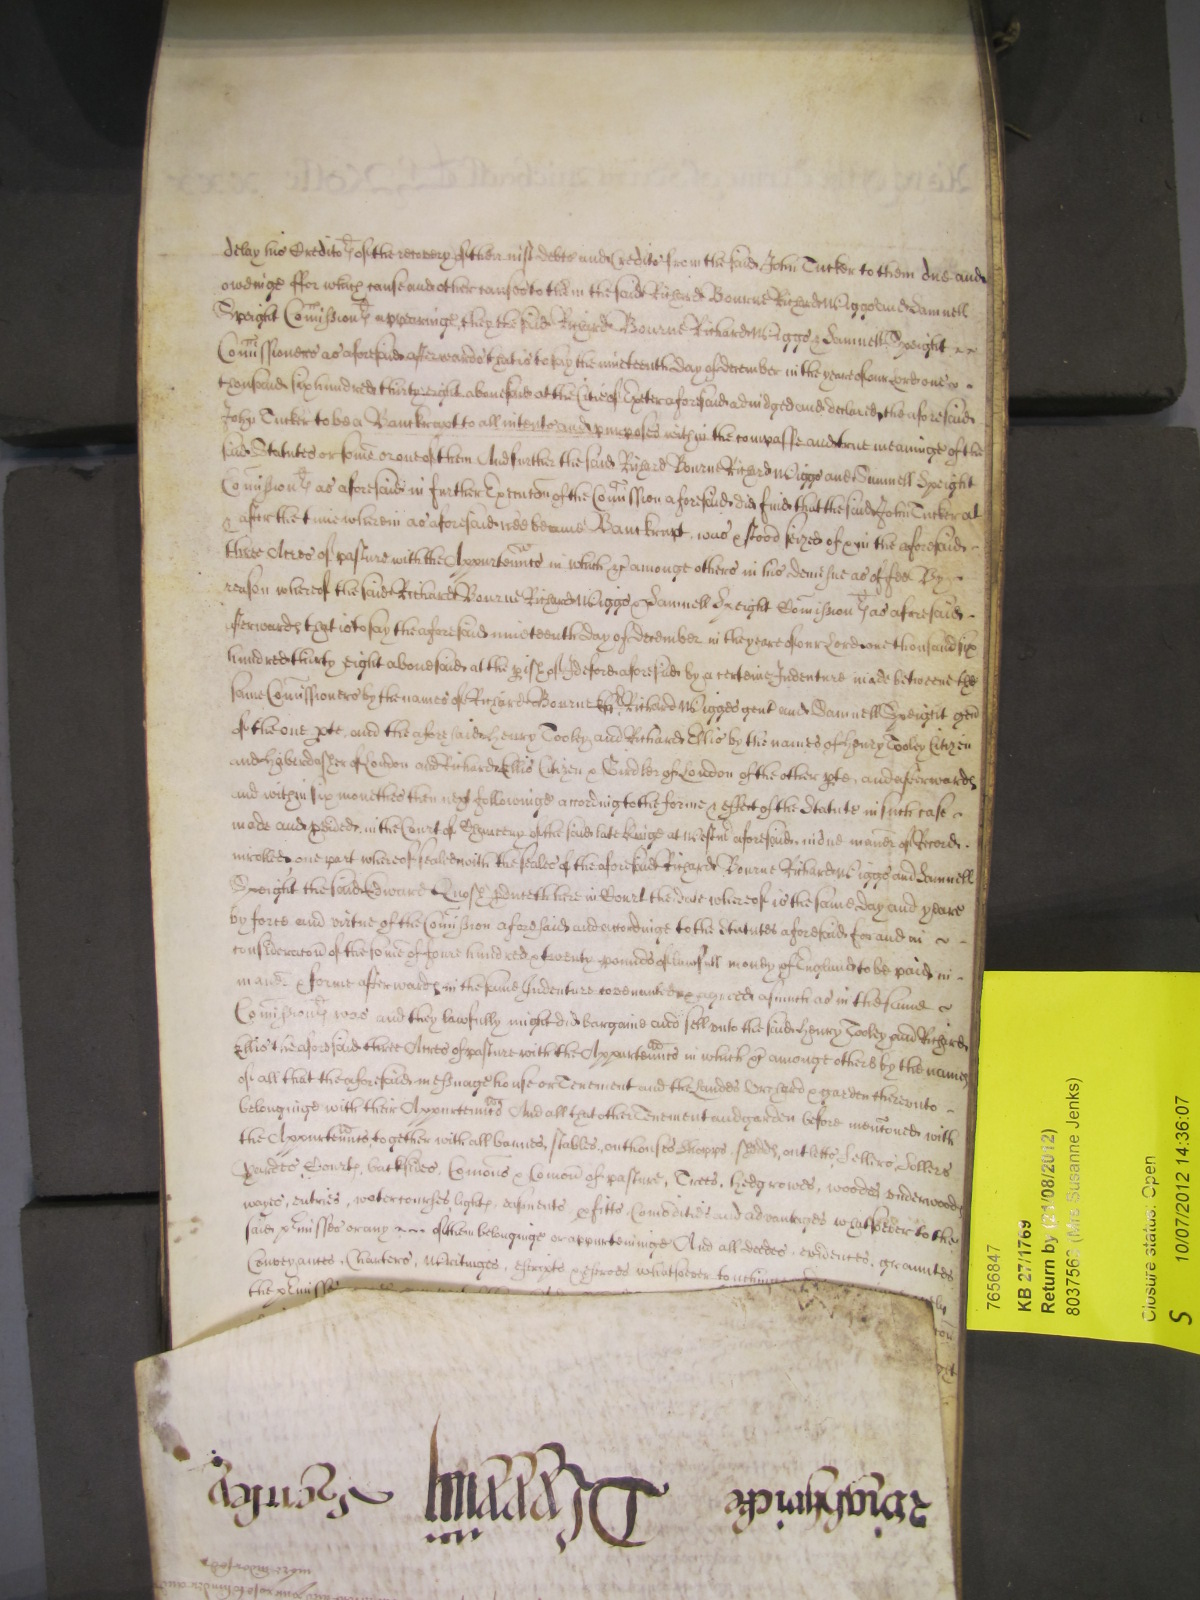 delay his Creditors of the recovery of their iust debts and Credits from the said John Tucker to them due and
oweinge ffor which cause and other causes to them the said Richard Bourne Richard Wiggs and Samuell
Speight Comissionrs appearinge, they the said Richard Bourne Richard Wiggs & Samuell Speight
Comissioners as aforesaid afterwards that is to say the nineteenth day of december in the yeare of our Lord one
thousand six hundred thirty eight abovesaid at the Citie of Exeter aforesaid adiudged and declared the aforesaid
John Tucker to be a Banckrupt to all intents and purposes within the compasse and true meaninge of the
said Statutes or some or one of them And further the said Richard Bourne Richard Wiggs and Samuell Speight
Comissionrs as aforesaid in further Execucon of the Comission aforesaid did find that the said John Tucker at
& after the time wherein as aforesaid hee became Banckrupt, was & stood seized of & in the aforesaid
three Acres of pasture with the Appurtennts in which &c amonge others in his demesne as of fee By
reason whereof the said Richard Bourne Richard Wiggs & Samuell Speight Comissionrs as aforesaid
afterwards that is to say the aforesaid nineteenth day of december in the yeare of our Lord one thousand six
hundred thirty eight abovesaid at the pish of Ideford aforesaid by a certeine Indenture made betweene the
same Comissioners by the names of Richard Bourne Richard Wigges gent and Samuell Speight gent
of the one pte, and the aforesaid Henry Tooley and Richard Ellis by the names of Henry Tooley Citizen
and Haberdasher of London and Richard Ellis Citizen & Girdler of London of the other pte, and afterwards
and within six monethes then next followinge according to the forme & effect of the Statute in such case
made and pvided, in the Court of Chancery of the said late Kinge at Westmr aforesaid in due maner of Record
inrolled one part whereof sealed with the seales of the aforesaid Richard Bourne Richard Wiggs and Samuell
Speight the said Edward pduceth here in Court the date whereof is the same day and yeare
by force and virtue of the Comission aforesaid and accordinge to the Statutes aforesaid for and in
consideracon of the some of foure hundred & twenty pounds of lawfull money of England to be paid in
maner & forme afterwards in the same Indenture covenanted & agreed asmuch as in the same
Comissionrs was and they lawfully might did bargaine and sell unto the said Henry Tooley and Richard
Ellis the aforesaid three Acres of pasture with the Appurtennts in which &c amonge others by the names
of all that the aforesaid messuage house or Tenement and the Landes Orchard & garden thereunto
belonginge with their Appurtennts And all that other Tenement and garden before mencioned with
the Appurtennts together with all barnes, stables, outhouses Shopps outletts, Sellers, Sollers
yardes Courts, backsides, Comons & Comon of pasture, Trees, hedgrowes, woodes underwoods
wayes, entries, watercourses, lights, easments pfitts, Comodities and advantages whatsoever to the
said pmisses or any of them belonginge or appurteninge And all deedes, evidences, grauntes
Conveyances, Charters, Writinges, escripts whatsoever touchinge
the pmisses
7656847
KB 27/1769
Return by (21/08/2012)
8037562 (Mrs Susanne Jenks)
Closure status: Open
S 10/07/2012 14:36:07
Henley